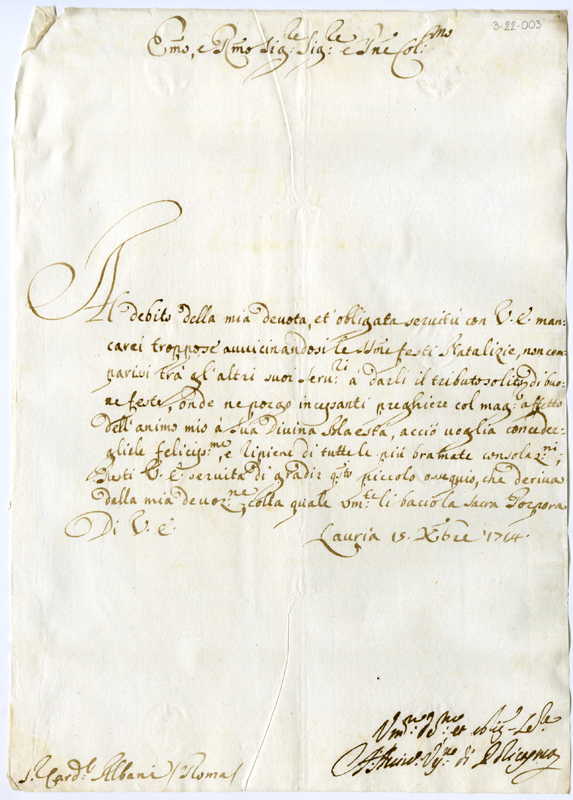 3-22-003
Emo, e Rmo Sig:re Sig:re e Pne Col:mo
Al debito della mia devota, et obligata servitù con V. E. man-
carei troppo se avvicinandosi le SSme feste Natalizie, non com-
parissi trà gl'altri suoi serv:ri à darli il tributo solito di buo-
ne feste, onde ne porgo incessanti preghiere col mag:r affetto
dell'animo mio à Sua Divina Maestà, acciò voglia concede-
gliele felicis:me, e ripiene di tutte le più bramate consolaz:ni,
Resti V. E. servita di gradir q:sto piccolo ossequio, che deriva
dalla mia devoz:ne, colla quale um:te li bacio la Sacra Porpora
Di V. E.
Lauria 15. Xbre 1714.
Um:mo D:mo et oblig:
Vo di Policastro
S.r Card:l Albani (Roma)